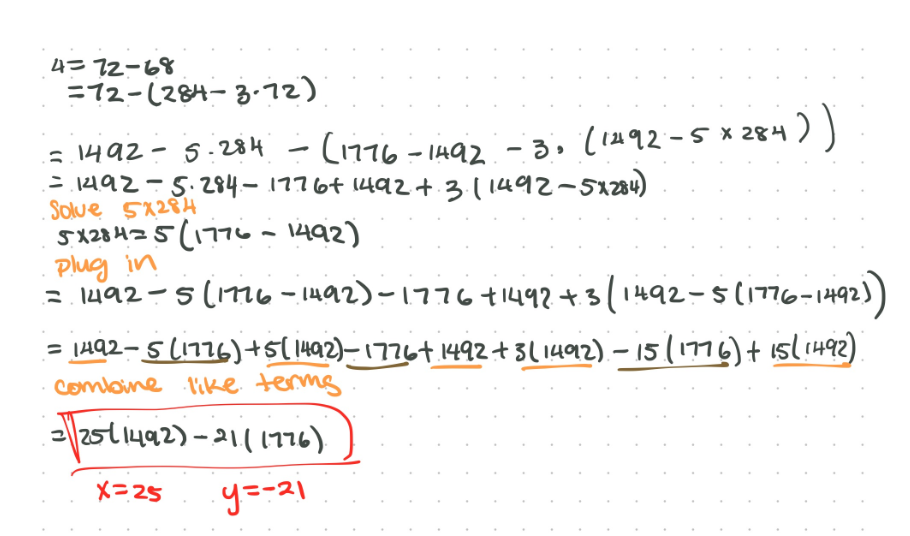 4 = 72 - 68
= 72 - (284 - 3·72)
= 1492 - 5·284 - (1776 - 1492 - 3·(1492 - 5 × 284))
= 1492 - 5·284 - 1776 + 1492 + 3(1492 - 5×284)
Solve 5×284
5×284 = 5(1776 - 1492)
plug in
= 1492 - 5(1776 - 1492) - 1776 + 1492 + 3(1492 - 5(1776 - 1492))
= 1492 - 5(1776) + 5(1492) - 1776 + 1492 + 3(1492) - 15(1776) + 15(1492)
combine like terms
= 25(1492) - 21(1776)
x = 25 y = -21